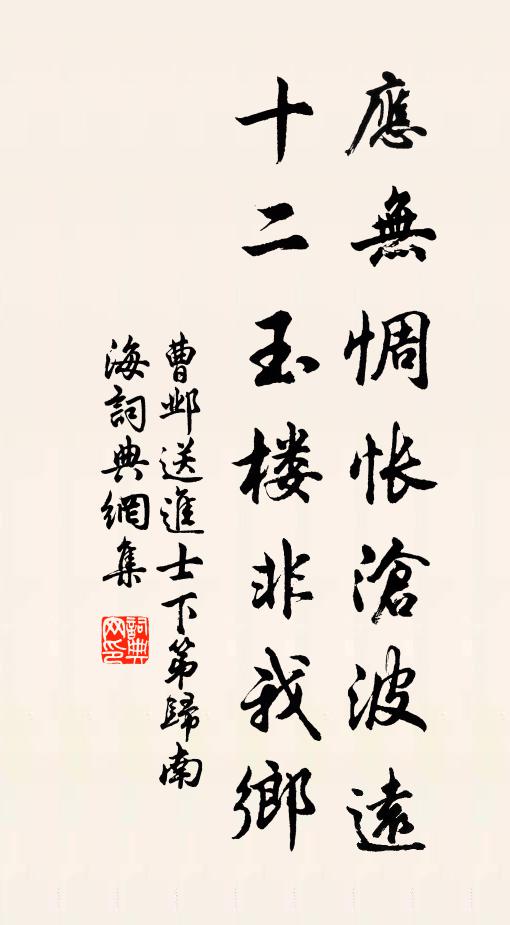 應無惆悵滄波遠
十二玉楼非我鄉
曹邺送進士下第歸南
海詞典網集
詞典网印